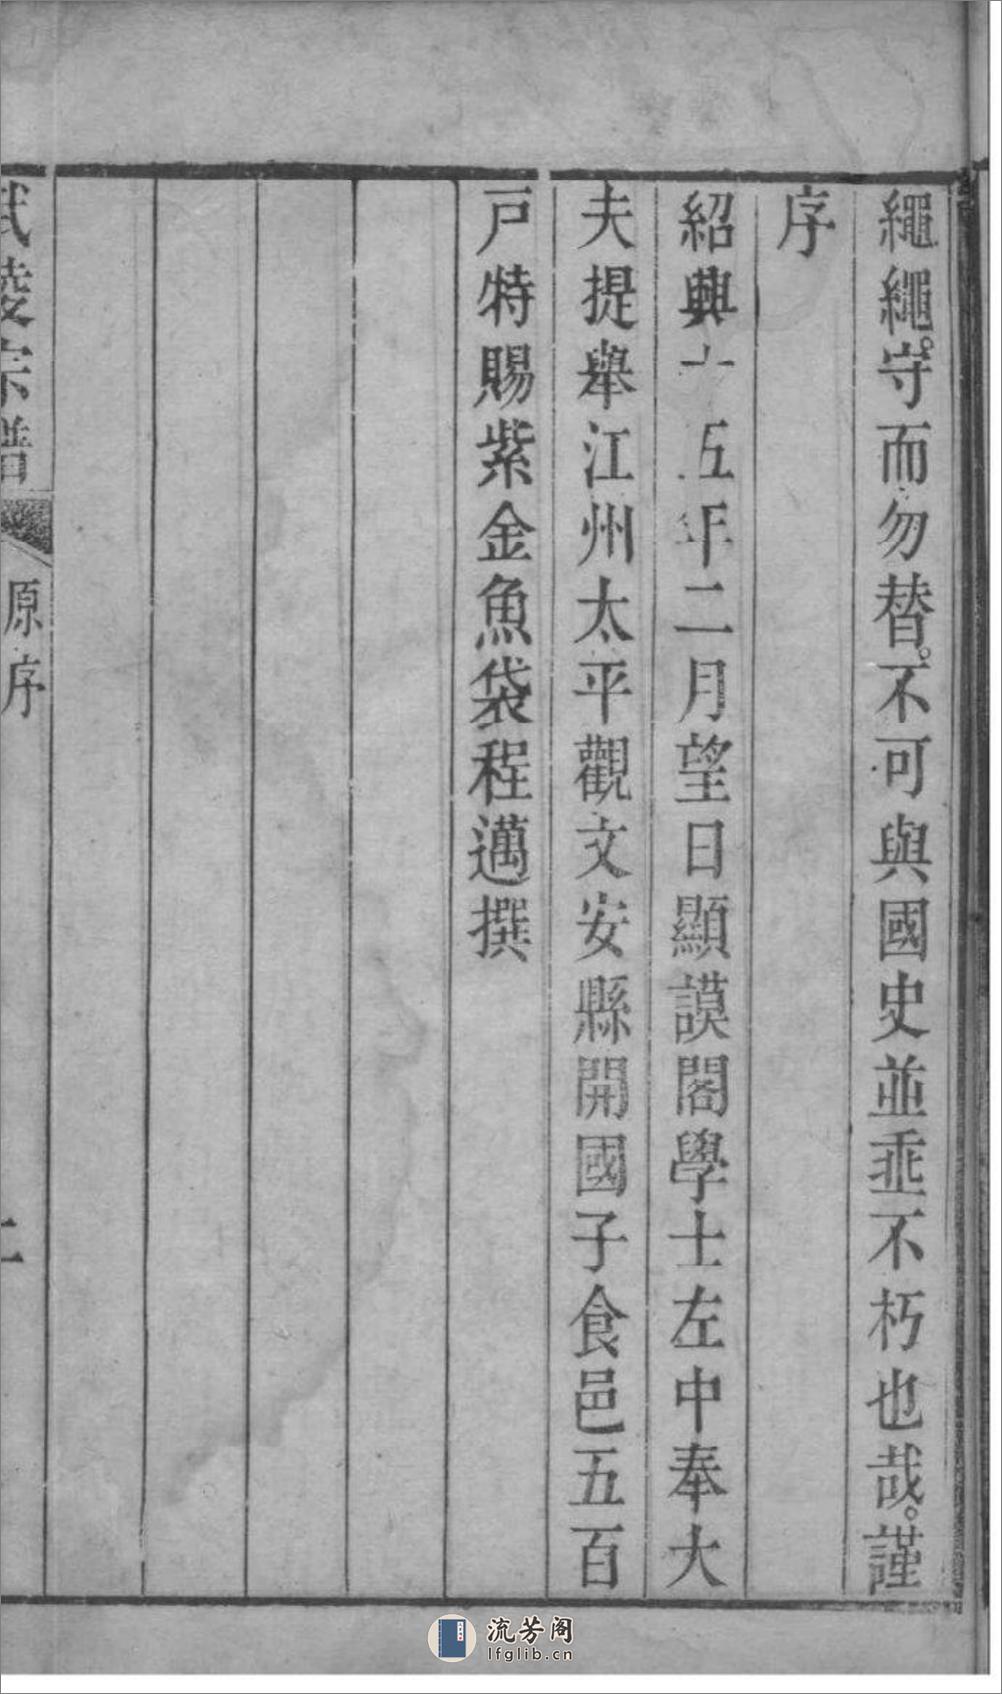 繩繩。守而勿替。不可與國史並垂不朽也哉。謹
序
紹興十五年二月望日顯謨閣學士左中奉大
夫提舉江州太平觀文安縣開國子食邑五百
戸特賜紫金魚袋程邁撰
武陵宗譜 原序
流芳阁
lfglib.cn